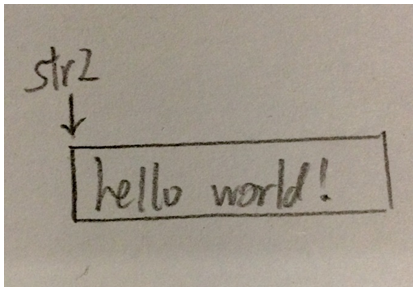 str2
hello world!